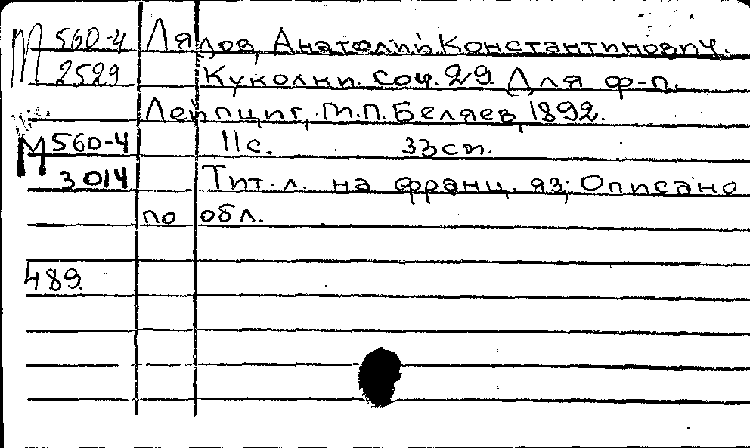 М 560-4 Лядов, Анатолий Константинович.
2529 Куколки. Соч. 29 Для ф-п.
Лейпциг, М.П. Беляев, 1892.
М 560-4 11 с. 33 см.
3014 Тит. л. на франц. яз; Описано
по обл.
489